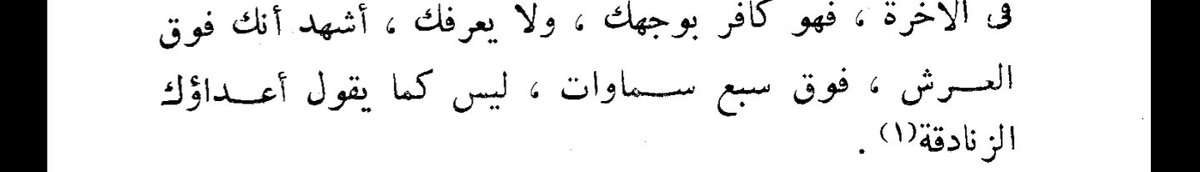 فى الآخرة ، فهو كافر بوجهك ، ولا يعرفك ، أشهد أنك فوق
العـرش ، فوق سبع سـماوات ، ليس كما يقول أعـداؤك
الزنادقة(١) .